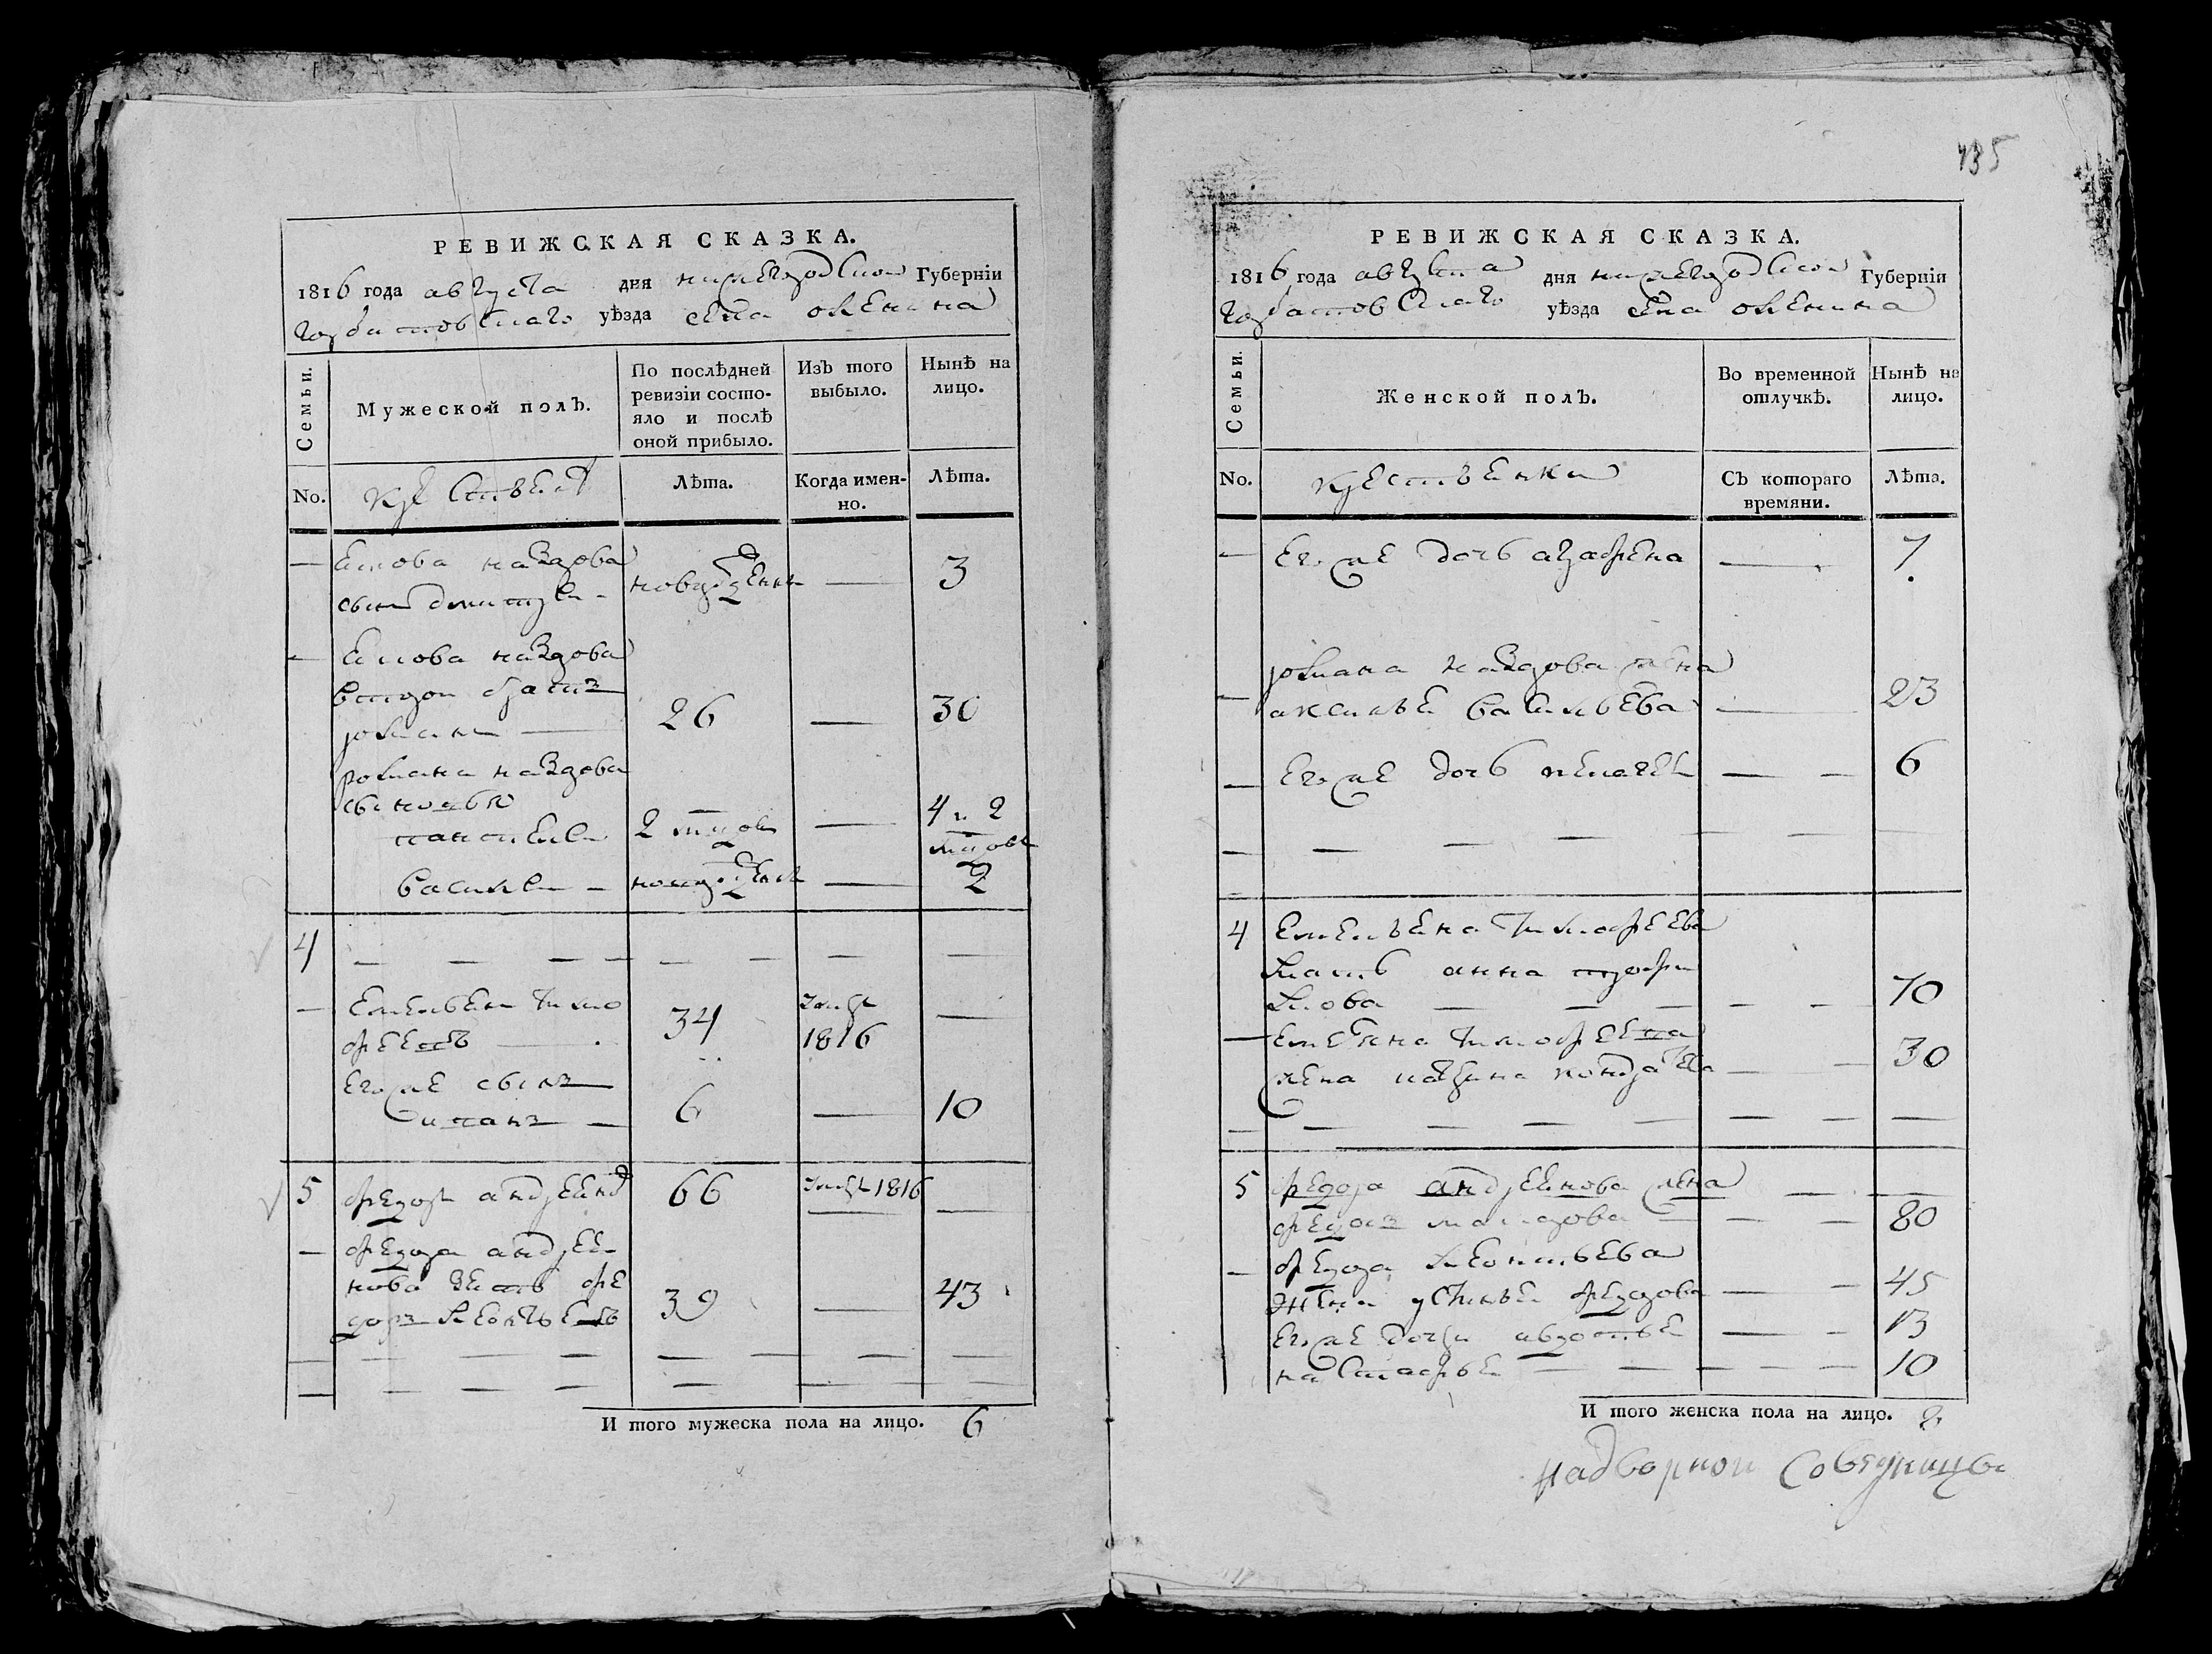 РЕВИЖСКАЯ СКАЗКА.
1816 года августа дня нижегородской Губерніи
горбатовскаго уѣзда села оленина
Семьи.
Мужеской полъ.
По послѣдней ревизіи состо-
яло и послѣ
оной прибыло.
Изъ того
выбыло.
Нынѣ на
лицо.
No.
Лѣта.
Когда имен-
но.
Лѣта.
назарова
сын дмитрей новорожденны 3
назарова
второй братъ
романъ 26 30
романа назарова
сыновья
пантелей 2 4 и 2
василей 2
4
емельян тимо
феевъ 34 1816
его же сынъ
6 10
5 федор андреянов 66 1816
федора андреянова
зять фе
доръ леонтьевъ 39 43
И того мужеска пола на лицо. 6
135
РЕВИЖСКАЯ СКАЗКА.
1816 года августа дня нижегородской Губерніи
горбатовскаго уѣзда села оленина
Семьи.
Женской полъ.
Во временной
отлучкѣ.
Нынѣ на
лицо.
No.
Съ котораго
времяни.
Лѣта.
его же дочь аграфена 7
романа назарова жена
аксинья васильева 23
его же дочь пелагея 6
4 емельяна тимофеева
мать анна трофи
мова 70
емельяна тимофеева
жена кондратьева 30
5 федора андреянова жена
80
федора леонтьева
жена устинья федорова 45
его же дочери авдотья 13
настасья 10
И того женска пола на лицо.
надворной советницы